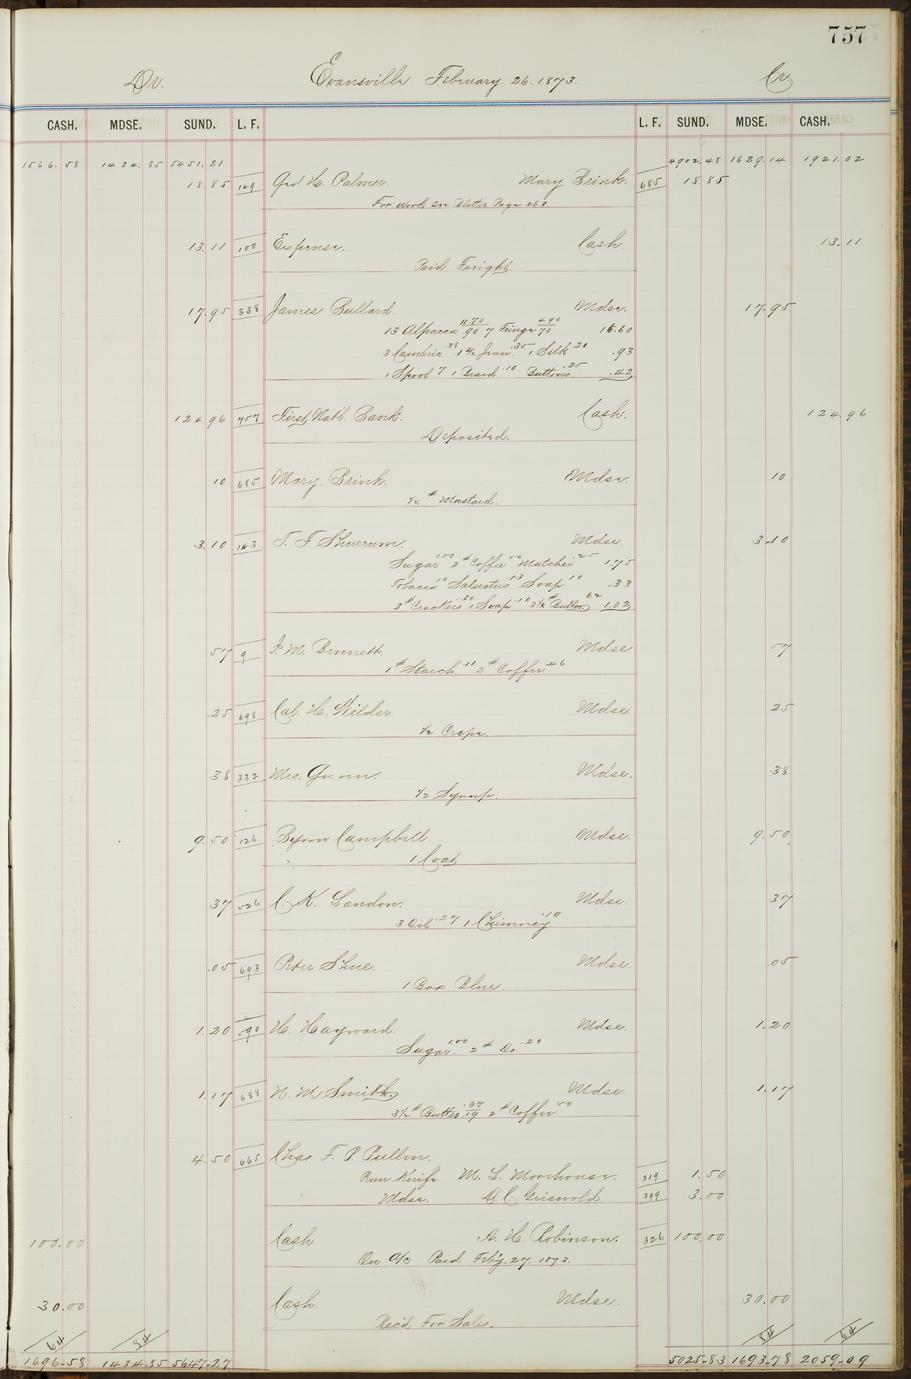 757
Dr. Evansville February. 26. 1873. Cr
CASH. MDSE. SUND. L. F. L. F. SUND. MDSE. CASH.
1566.58 1434.85 5451.21 4902.48 1629.14 1921.02
18.85 149 Geo H. Palmer. Mary Brink. 685 18.85
For Work see Blotter Page 263.
13.11 100 Expense. Cash 13.11
Paid Freight.
17.95 338 James Bullard. Mdse. 17.95
13 Alpacca 11.70/90 7 Fringe 4.90/70 16.60
3 Cambric .38 1 3/4 Jean .35 1 Silk .20 .93
1 Spool 7 1 Braid .10 Buttons .25 .42
124.96 757 First Natl. Bank. Cash. 124.96
Deposited.
10 685 Mary. Brink. Mdse. 10
1/4 # Mustard.
3.10 143 T. F Shurrum. Mdse. 3.10
Sugar 1.00 2 # Coffee 50 Matches 25 1.75
Tobacco 10 Saleratus .13 Soap 10 .33
3 # Crackers .30 1 Soap .10 3 1/4 # Butter 62 1.02
57 9 I. M. Bennett Mdse 57
1 # Starch .11 2 # Coffee .46
.25 698 Cal. H. Wilder. Mdse. 25
1/2 Crape.
38 332 Mrs. Gunn Mdse. .38
1/2 Syrup.
9.50 126 Byron Campbell. Mdse. 9.50
1 Coat
37 526 C. K. Landon. Mdse. 37
3 Oil .27 1 Chimney .10
.05 693 Peter Shue. Mdse. .05
1 Box Blue.
1.20 590 H. Hayward. Mdse. 1.20
Sugar 1.00 2 # Do. .20
1.17 684 N. M Smith. Mdse. 1.17
3 1/2 # Butter .67/19 2 # Coffee 50
4.50 665 Chas F. P Pullen.
Pum Knife M. L. Moorhouse. 319 1.50
Mdse. G. C. Griswold 399 3.00
100.00 Cash A. H. Robinson. 326 100.00
On a/c Paid Feb'y. 27. 1873.
30.00 Cash. Mdse. 30.00
Rec'd For Sales.
64 84 84 64
1696.58 1434.85 5647.27 5025.83 1693.78 2059.09